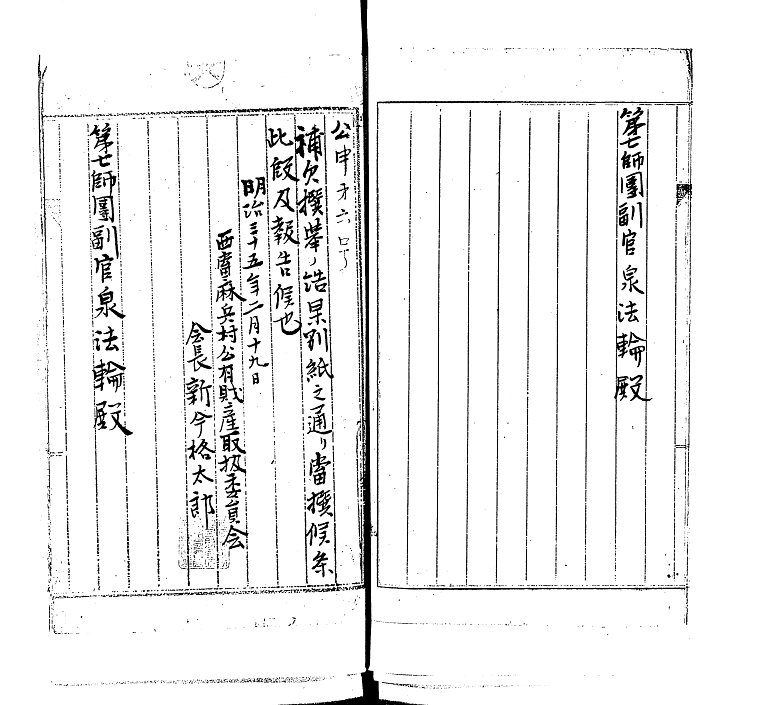 第七師團副官泉法輪殿
公申才六号
補欠撰挙ノ結果別紙之通リ當撰候条
此段及報告候也
明治三十五年二月十九日
西當麻兵村公有財産取扱委員会
会長新今格太郎
第七師團副官泉法輪殿